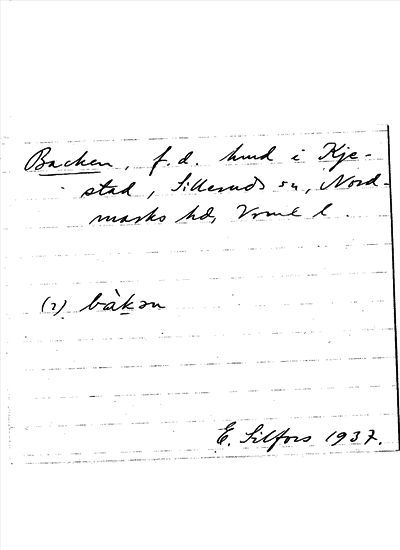 Backen, f.d. hmd i Kje-
stad, Silleruds sn, Nord-
marks hd, Vrml l.
(2). bàkən
E. Silfors 1937.